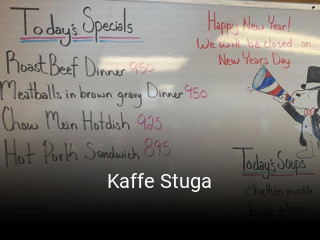 Today's Specials
Roast Beef Dinner 950
Meatballs in brown gravy Dinner 950
Chow Mein Hotdish 925
Hot Pork Sandwich 895
Happy New Year!
We will be closed on
New Years Day
Today's Soups
Chicken noodle
Kaffe Stuga